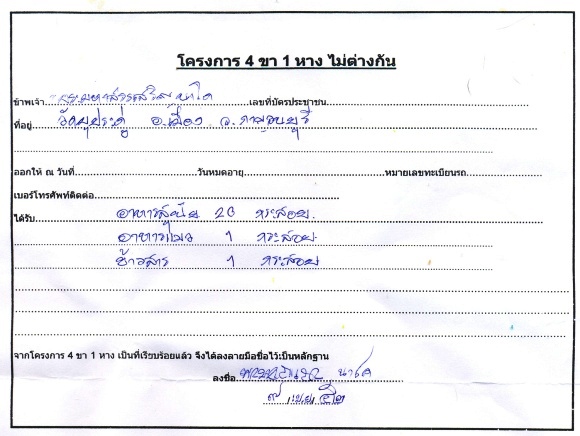 โครงการ 4 ขา 1 หาง ไม่ต่างกัน
ข้าพเจ้า เลขที่บัตรประชาชน
ที่อยู่ อ.เมือง จ.กาญจนบุรี
ออกให้ ณ วันที่ วันหมดอายุ หมายเลขทะเบียนรถ
เบอร์โทรศัพท์ติดต่อ
ได้รับ อาหารสุนัข 20 กระสอบ
อาหารแมว 1 กระสอบ
ข้าวสาร 1 กระสอบ
จากโครงการ 4 ขา 1 หาง เป็นที่เรียบร้อยแล้ว จึงได้ลงลายมือชื่อไว้เป็นหลักฐาน
ลงชื่อ